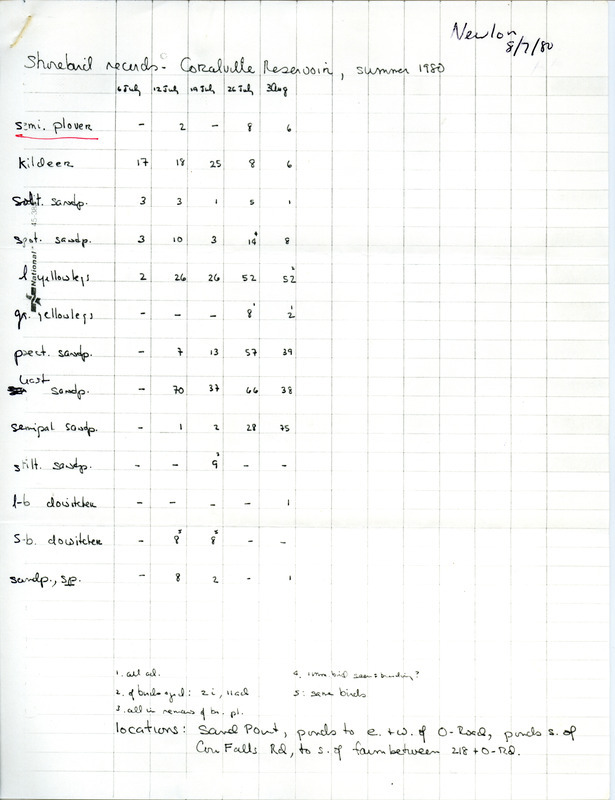 Newlon
8/7/80
Shorebird records - Coralville Reservoir, summer 1980
6 July 12 July 19 July 26 July 3 Aug
semi. plover - 2 - 8 6
Kildeer 17 18 25 8 6
solit. sandp. 3 3 1 5 1
spot. sandp. 3 10 3 14⁴ 8
l. yellowlegs 2 26 26 52 52²
gr. yellowlegs - - - 8¹ 2¹
pect. sandp. - 7 13 57 39
least sandp. - 70 37 66 38
semipal sandp. - 1 2 28 75
stilt. sandp. - - 9³ - -
l-b dowitcher - - - - 1
s-b. dowitcher - 8⁵ 8⁵ - -
sandp., sp. - 8 2 - 1
National 45-38
1. all ad.
2. of birds aged: 2 i, 11 ad.
3. all in remains of br. pl.
4. bird seen
5: same birds
locations: Sand Point, ponds to e. + w. of O-Road, ponds s. of
Cou Falls Rd, to s. of farm between 218 + O-Rd.